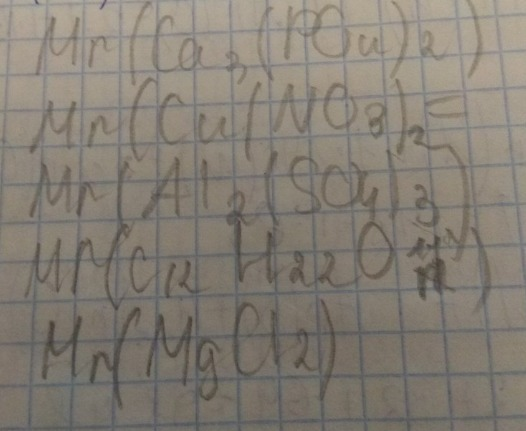 Mr(Ca3(PO4)2)
Mr(Cu(NO3)2=
Mr(Al2(SO4)3)
Mr(C12H22O11)
Mr(MgCl2)